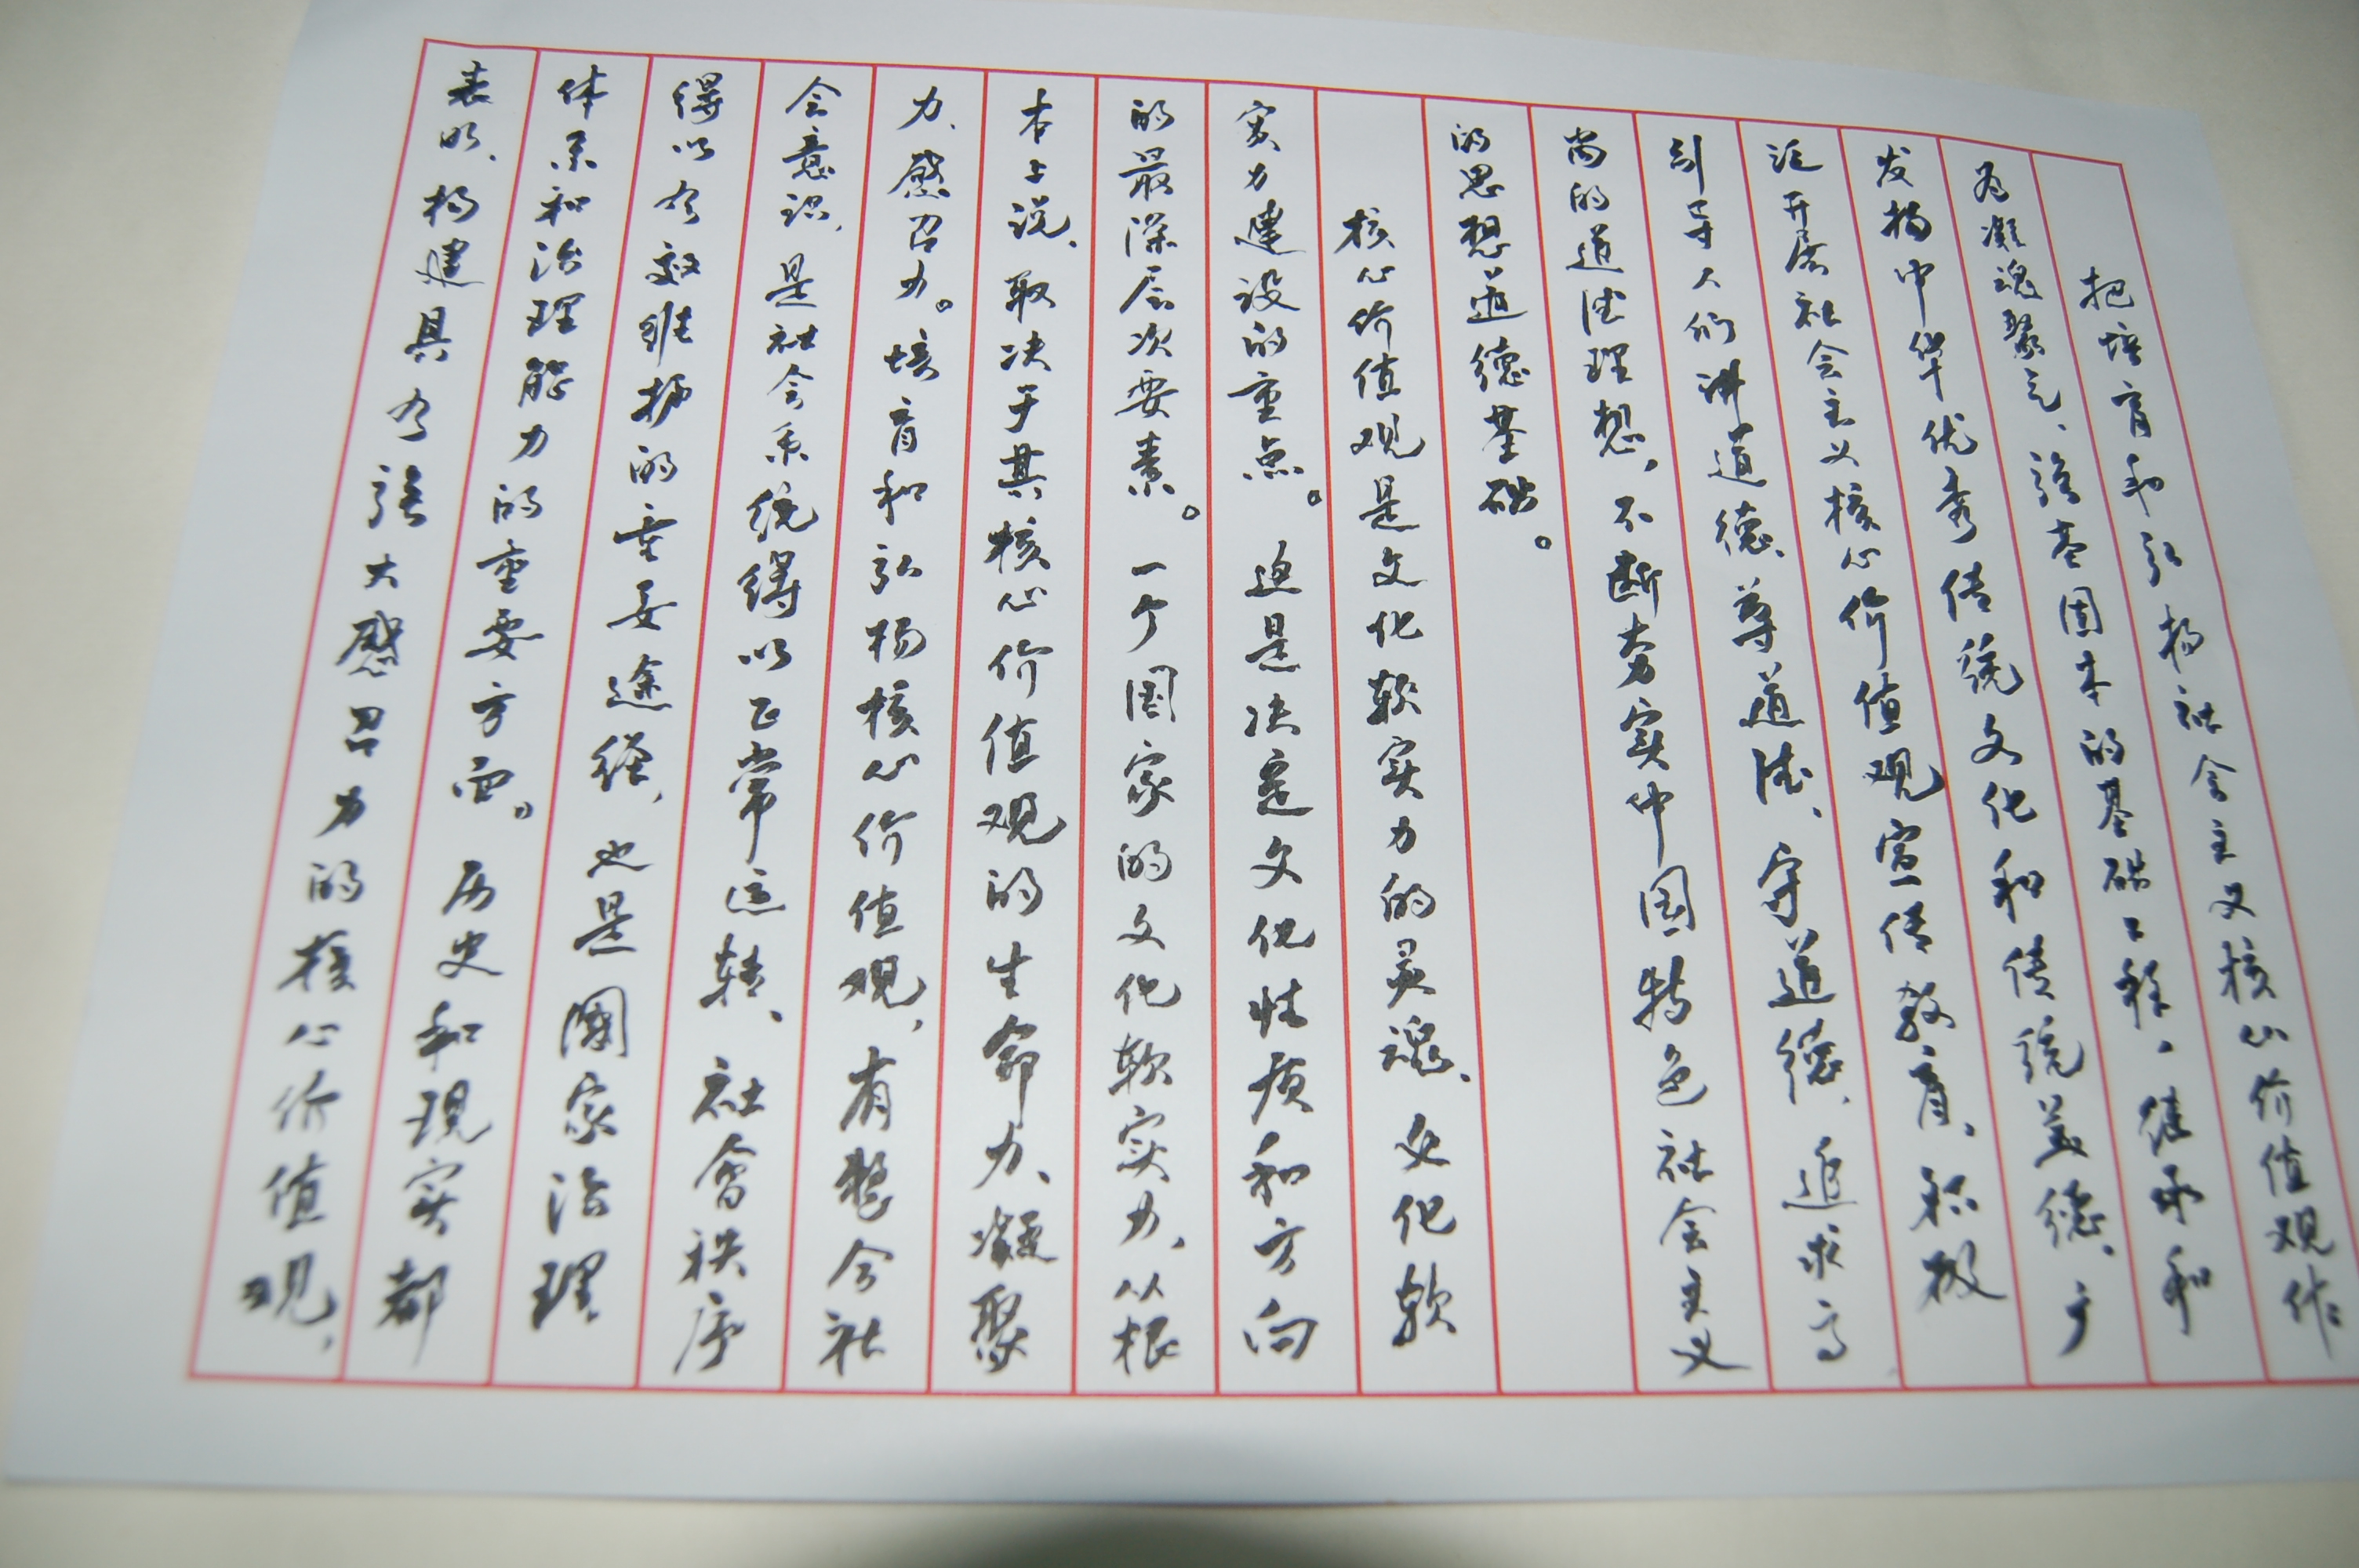 把培育和弘扬社会主义核心价值观作
为凝魂聚气、强基固本的基础工程。继承和
发扬中华优秀传统文化和传统美德、广
泛开展社会主义核心价值观宣传教育，积极
引导人们讲道德、尊道德、守道德、追求高
尚的道德理想，不断夯实中国特色社会主义
的思想道德基础。
核心价值观是文化软实力的灵魂、文化软
实力建设的重点。这是决定文化性质和方向
的最深层次要素。一个国家的文化软实力，从根
本上说，取决于其核心价值观的生命力、凝聚
力、感召力。培育和弘扬核心价值观，有整合社
会意识，是社会系统得以正常运转、社會秩序
得以有效维护的重要途径，也是國家治理
体系和治理能力的重要方面。历史和现实都
表明，构建具有强大感召力的核心价值观，